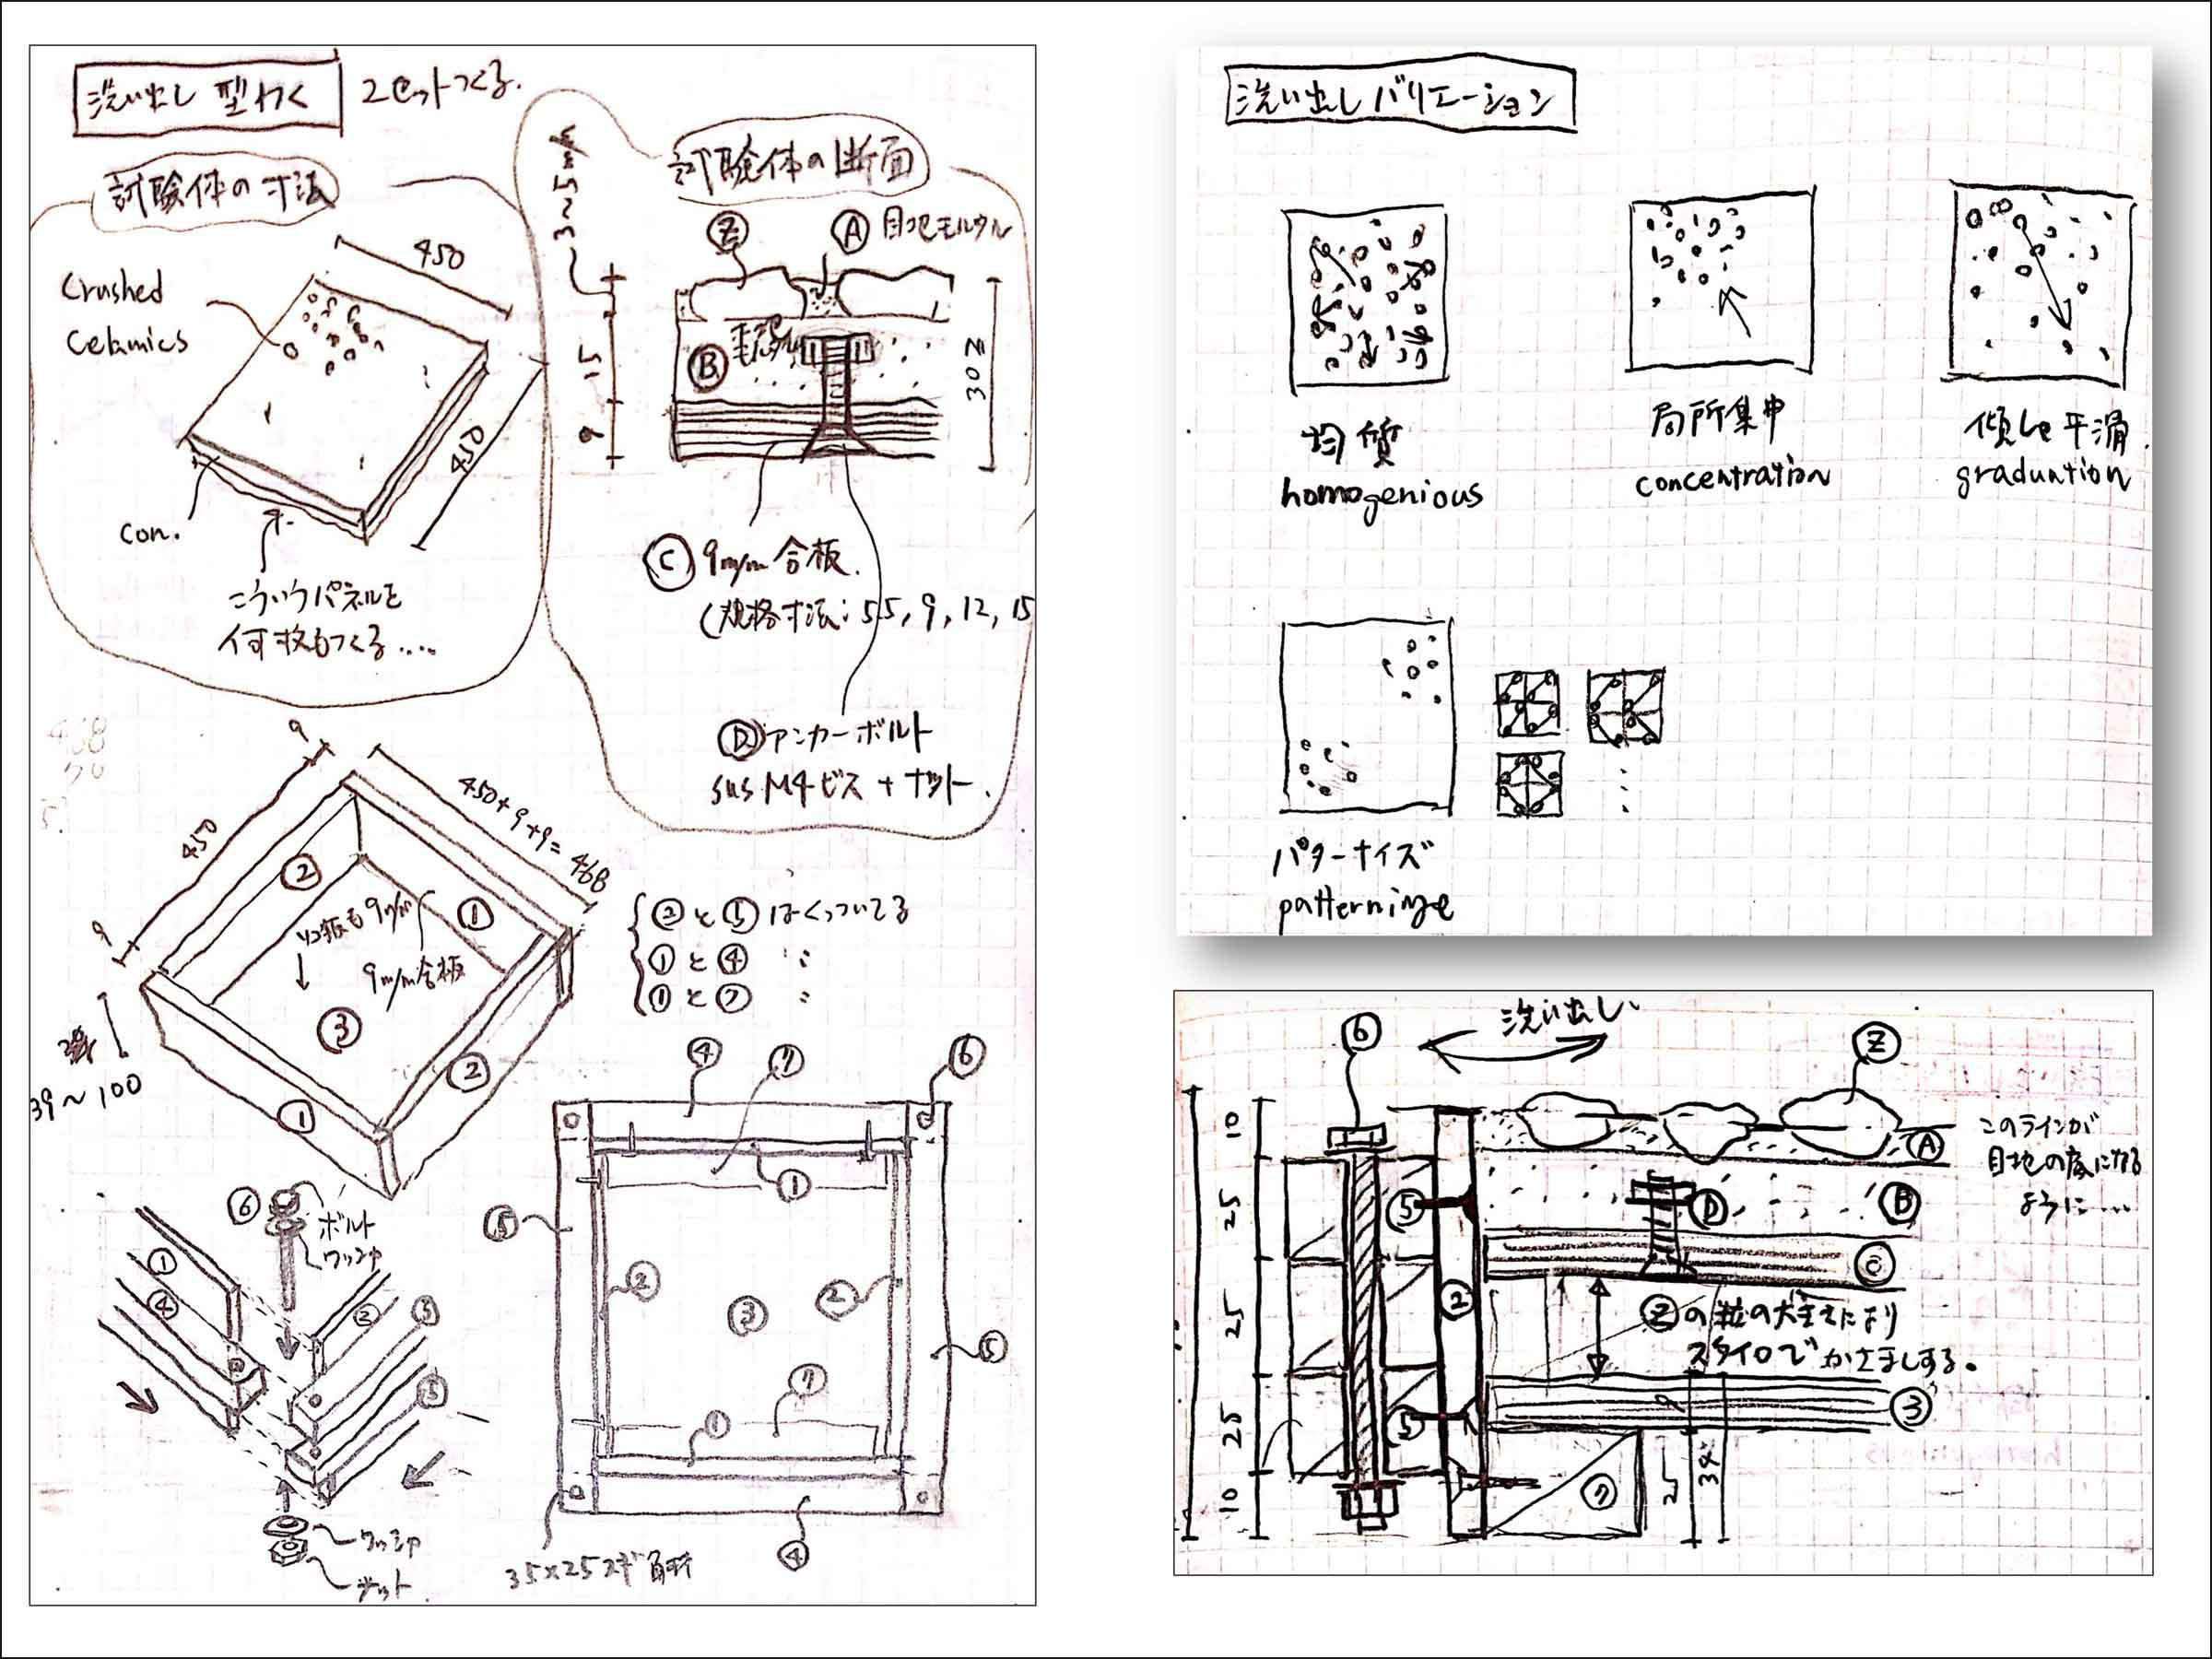 洗い出し 型わく
2セットつくる.
試験体の寸法
450
Crushed
Ceramics
450
con.
こういうパネルを
何枚もつくる....
試験体の断面
3~5
Z
A 目地モルタル
15
B
9
30
C 9m/m 合板.
(規格寸法: 5.5, 9, 12, 15
D アンカーボルト
SUS M4ビス + ナット.
9
450
9
450+9+9=468
2
ソコ板も9m/m
1
9m/m合板
3
2
1
39~100
2と5はくっついてる
1と4 〃
1と7 〃
6
ボルト
ワッシャ
1
4
2
5
5
ワッシャ
ナット
4
7
6
1
5
2
3
2
5
7
1
4
35×25スギ角材
洗い出しバリエーション
均質
homogenious
局所集中
concentration
平滑
graduation
パターナイズ
patterninze
洗い出し
6
Z
10
25
25
25
10
A
このラインが
目地の底になる
ように...
5
D
B
2
C
Zの粒の大きさにより
スタイロでかさましする.
5
9
3
7
25
34